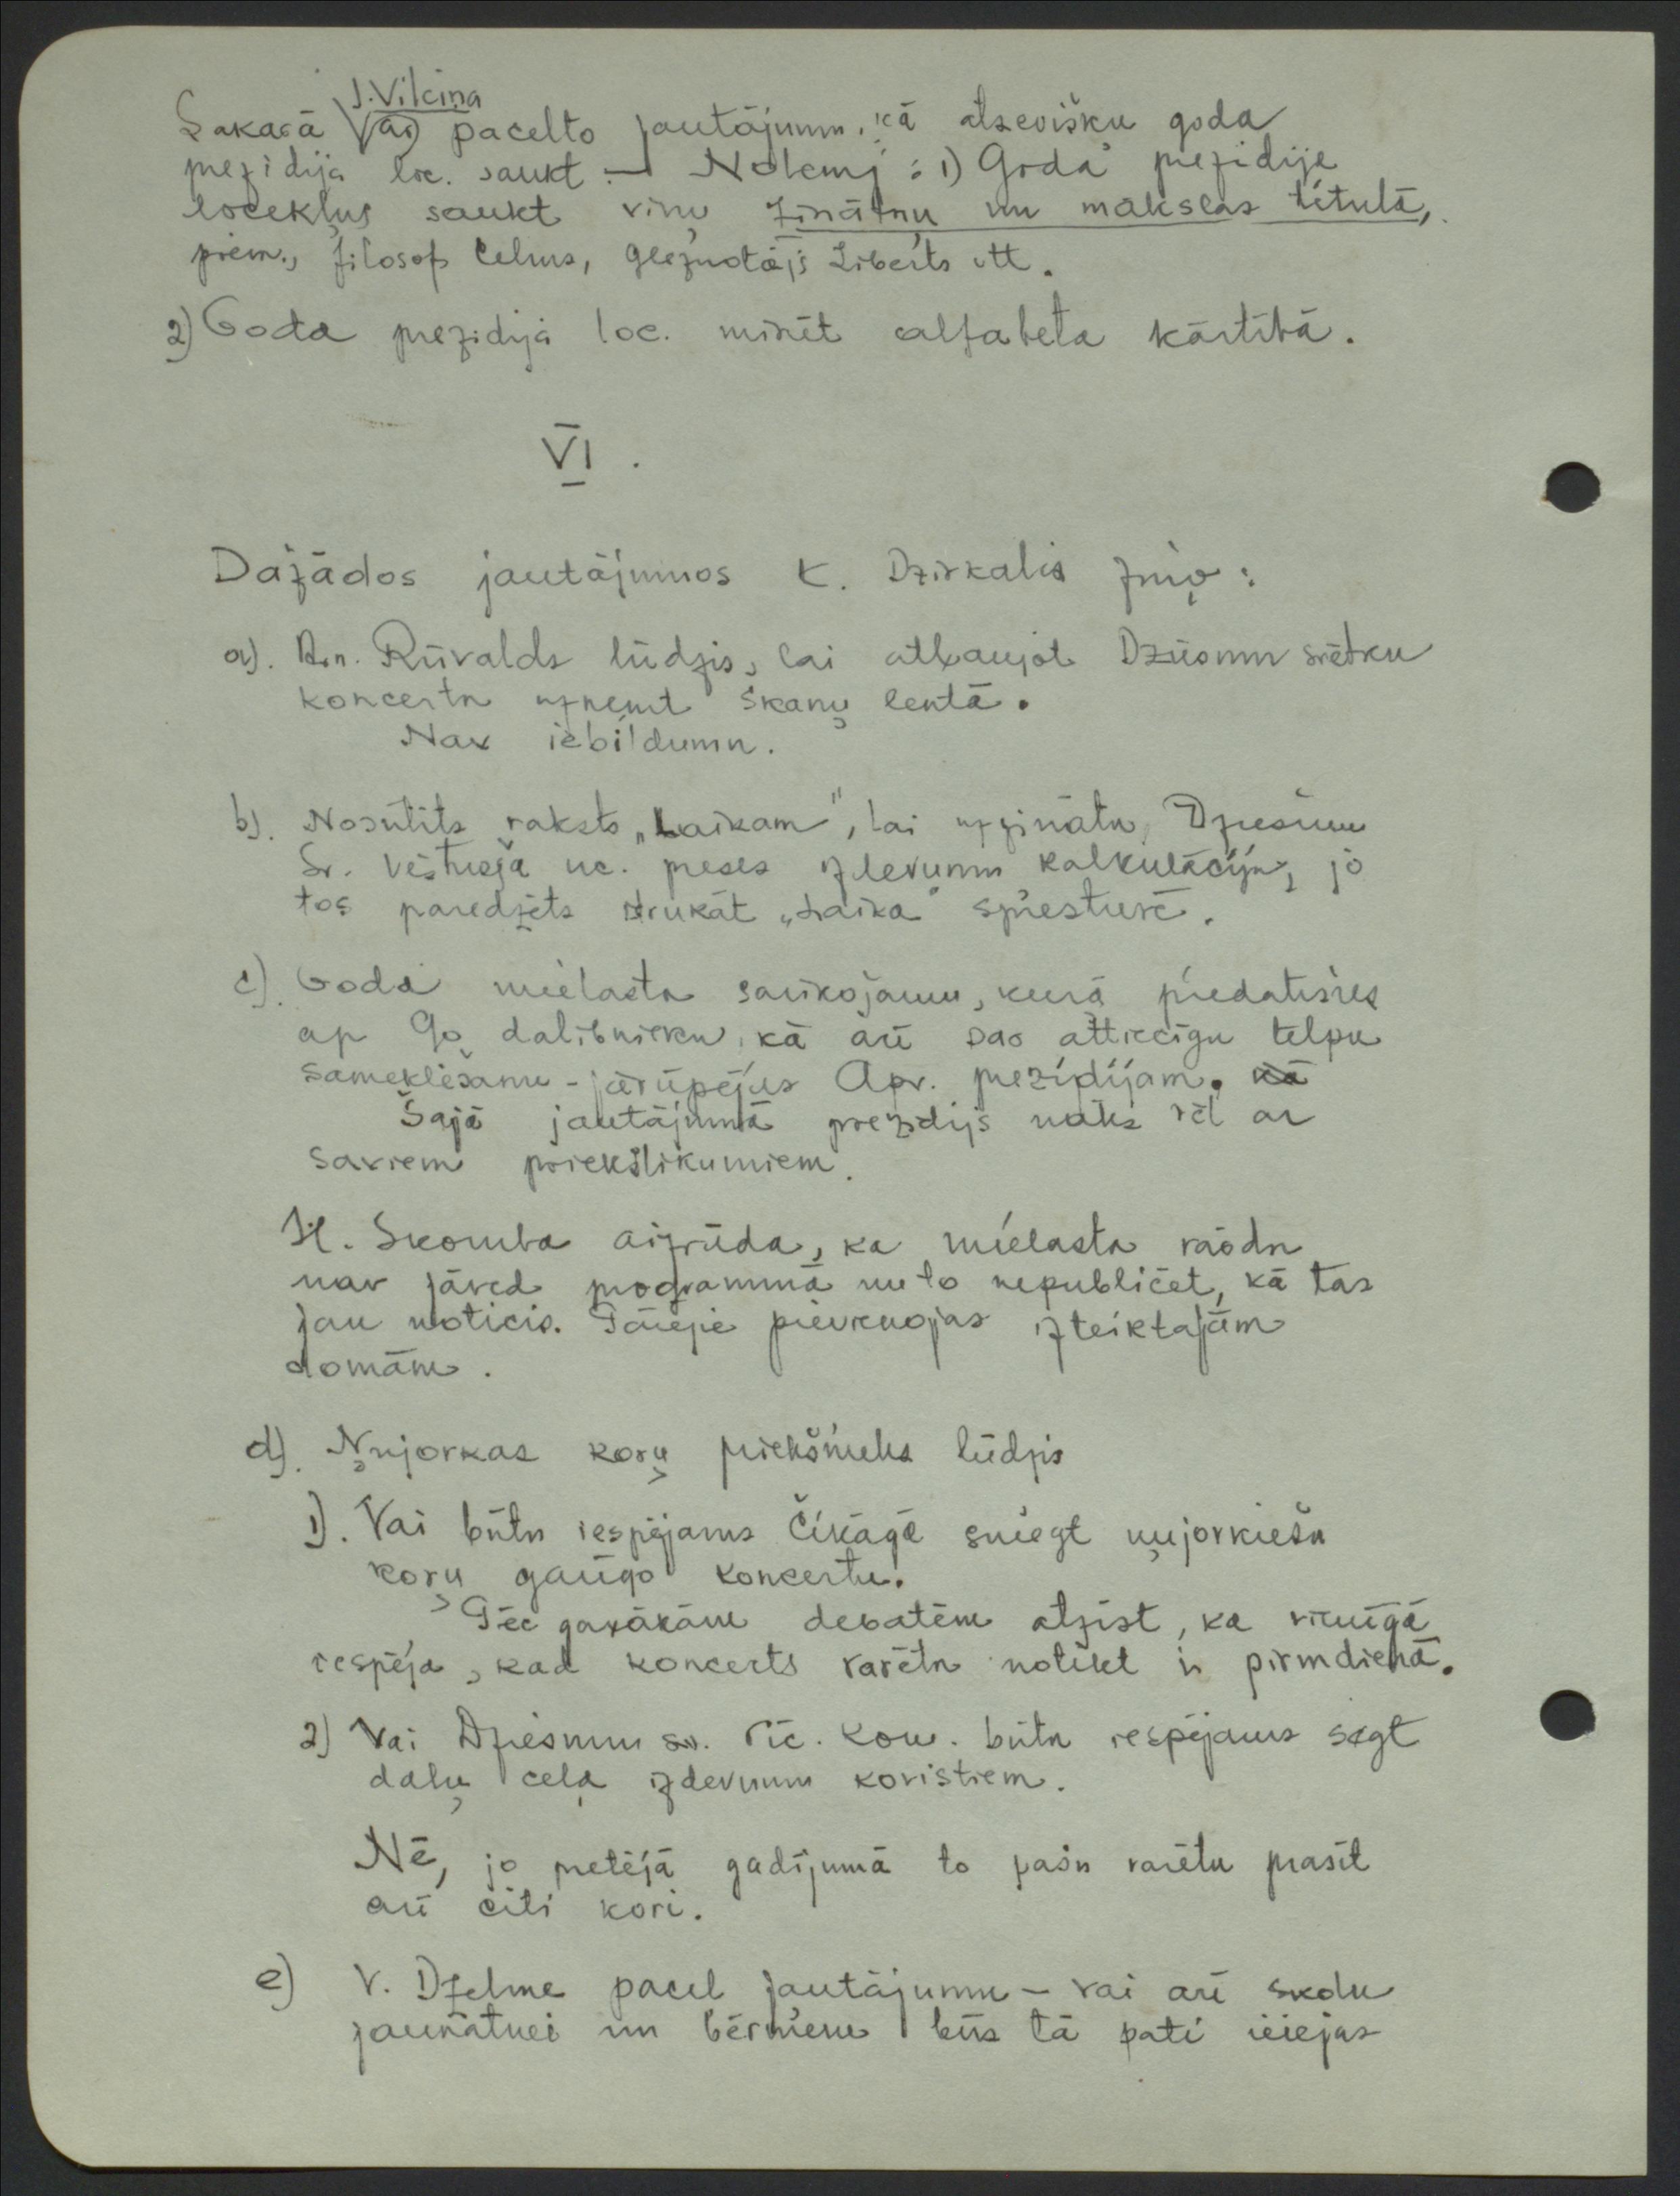 J. Vilciņa
Sakarā ar pacelto jautājumu, kā atsevišku goda
prezidija loc. saukt — Nolemj: 1) Goda prezidija
locekļus saukt viņu zinātņu un mākslas titulā,
piem., filosofs Celms, gleznotājs Liberts utt.
2) Goda prezidija loc. minēt alfabeta kārtībā.
VI.
Dažādos jautājumos K. Dzirkalis ziņo:
a). Rūvalds lūdzis, lai atļaujot Dziesmu svētku
koncertu uzņemt skaņu lentā.
Nav iebildumu.
b). Nosūtīts raksts „Laikam", lai uzzinātu Dziesmu
Sv. Vēstneša uc. preses izdevumu kalkulāciju, jo
tos paredzēts drukāt „Laika" spiestuvē.
c). Goda mielasta sarīkojamu, kurā piedalīsies
ap 90 dalībnieku, kā arī pao attiecīgu telpu
sameklēšanu - jārūpējas Apv. prezidijam. kā
Šajā jautājumā prezidijs nāks vēl ar
saviem priekšlikumiem.
H. Skomba aizrāda, ka mielasta rādu
nav jāved programmā un to nepublicēt, kā tas
jau noticis. Pārējie pievienojas izteiktajām
domām.
d). Ņujorkas koŗu priekšnieks lūdzis
1). Vai būtu iespējams Čikāgā sniegt ņujorkiešu
koŗu gaŗīgo koncertu.
Pēc gaŗākām debatēm atzīst, ka vienīgā
iespēja, kad koncerts varētu notikt ir pirmdienā.
2) Vai Dziesmu sv. rīc. kom. būtu iespējams segt
daļu ceļa izdevumu koristiem.
Nē, jo pretējā gadījumā to pašu varētu prasīt
arī citi kori.
e) V. Dzelme pacel jautājumu - vai arī skolu
jaunatnei un bērniem būs tā pati ieejas